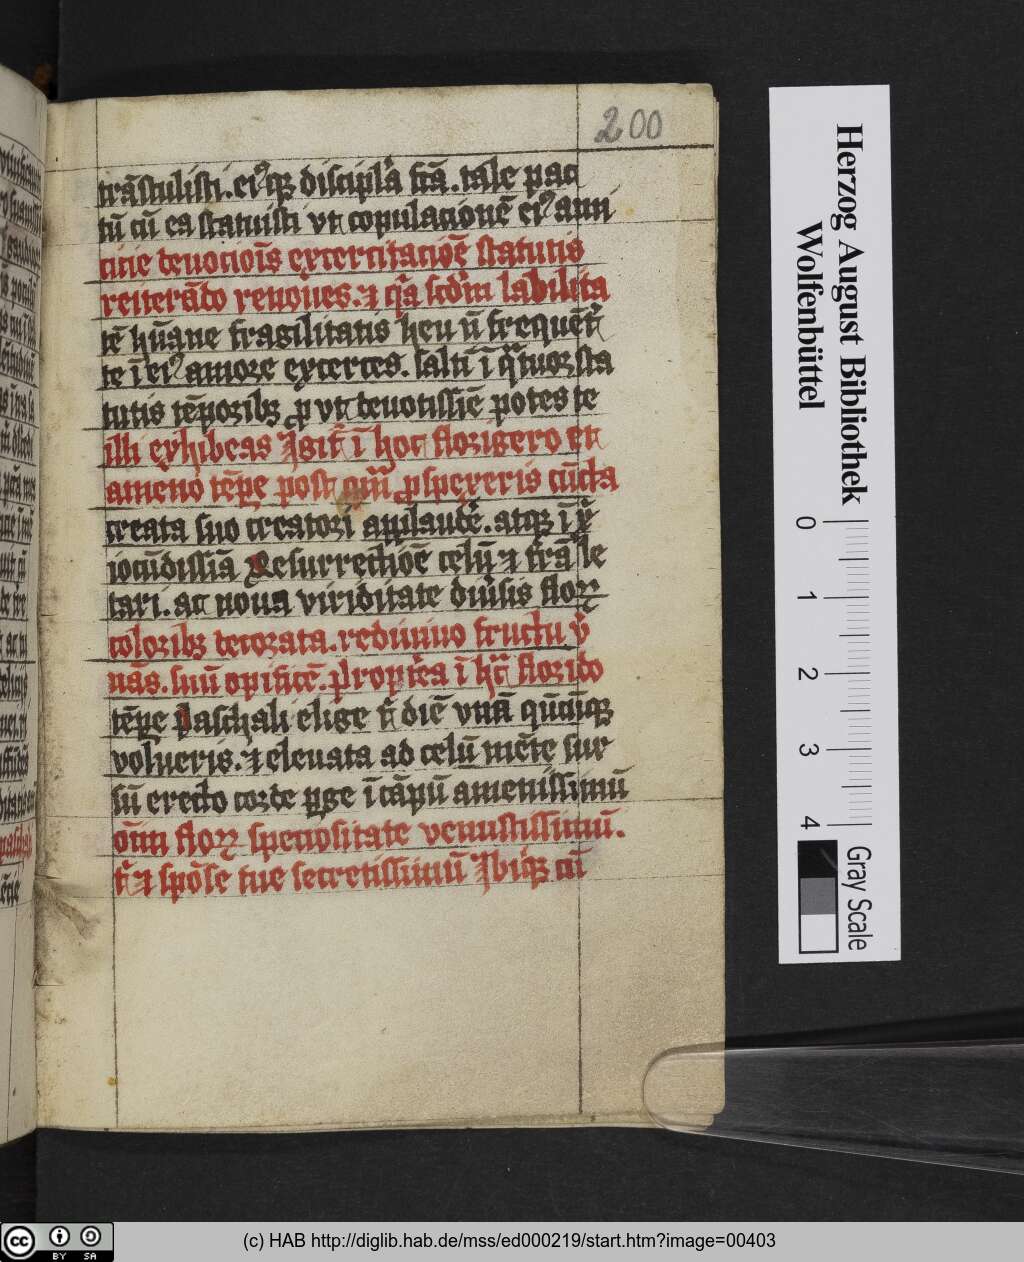 200
trāstulisti. eiꝰqꝫ discipl'a scā. tale pac
tū cū ea statuisti vt copulacionē eiꝰ ami
citie deuocōis excercitacōē statutis
reiterādo renoues. ⁊ q̄a scd'm labilita
tē hūane fragilitatis heu n̄ frequēt'
te ī eiꝰ amore excerces. saltī ī q̄tuor sta
tutis tēporibꝫ ꝓ vt deuotissiē potes te
illi exhibeas Igit' ī hoc florigero et
ameno tēpe post qm̄ ꝓspexeris cūcta
creata suo creatori applaudē. atqꝫ ī
iocūdissīa Resurrectiōē celū ⁊ t'rā le
tari. ac noua viriditate diu'sis floꝝ
coloribꝫ decorata. rediuiuo fructu
nās. suū opificē. propt'ea ī hᵒ florido
tēpe Paschali elige t' diē vnā qūcūqꝫ
volueris. ⁊ eleuata ad celū mēte sur
sū erecto corde pge ī cāpū amenissimū
oīm floꝝ speciositate venustissimū.
t' ⁊ spōse tue secretissimū Ibiqꝫ cū
Herzog August Bibliothek
Wolfenbüttel
0 1 2 3 4
Gray Scale
cc BY SA
(c) HAB http://diglib.hab.de/mss/ed000219/start.htm?image=00403